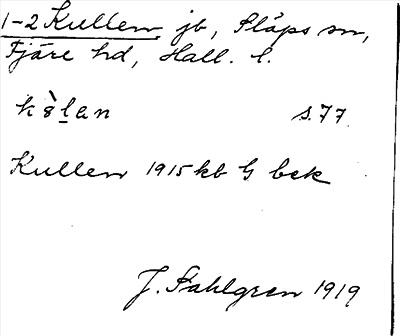 1-2 Kullen jb, Släps sn,
Fjäre hd, Hall. l.
s. 77
Kullen 1915 kb G bek
J. Sahlgren 1919